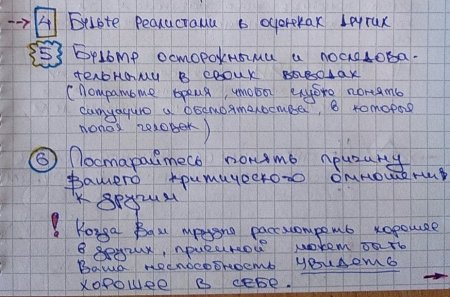 4 Будьте реалистами в оценках других
5 Будьте осторожными и последова-
тельными в своих выводах
(Потратьте время, чтобы глубко понять
ситуацию и обстоятельства, в которые
попал человек)
6 Постарайтесь понять причину
Вашего критического отношения
к другим
! Когда Вам трудно рассмотреть хорошее
в других, причиной может быть
Ваша неспособность увидеть
хорошее в себе.